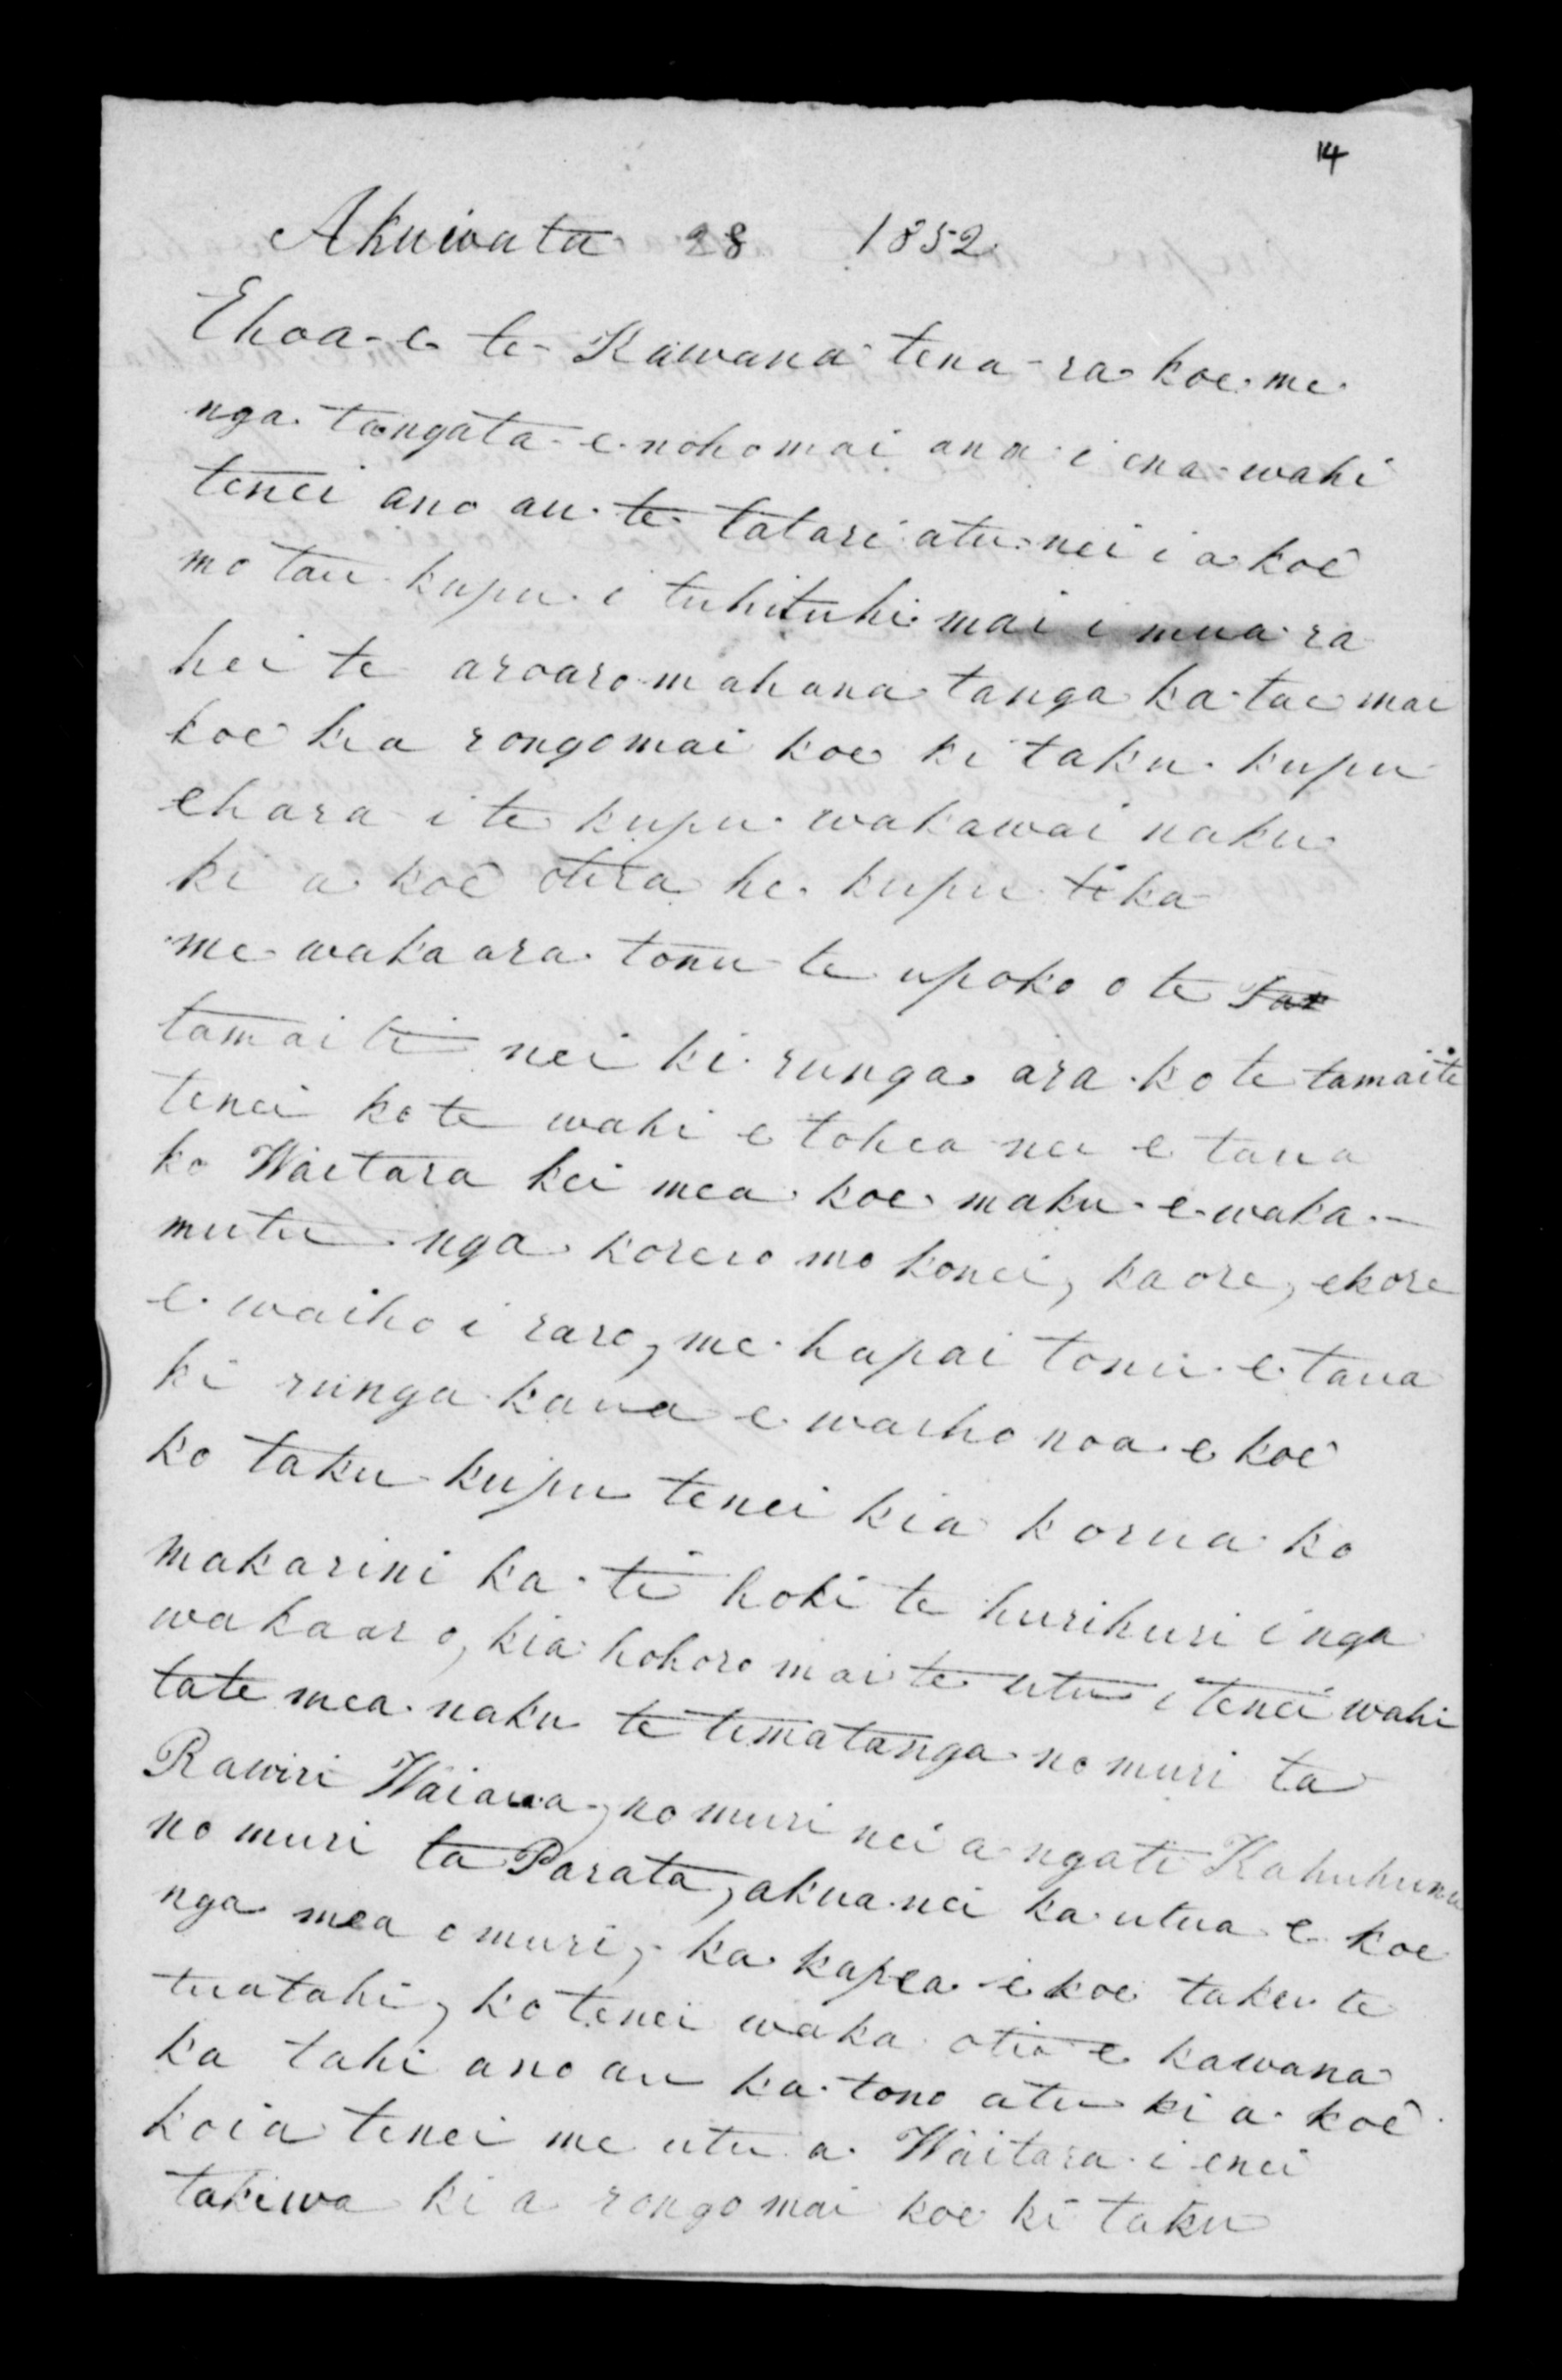 14
Akuwata 28 1852
Ehoa-e te-Kawana tena-ra koe me
nga tangata e nohomai ana i ena wahi
tenei ano au te tatari atu nei i a koe
mo tau kupu i tuhituhi mai i mua ra
hei te aroaromahana tanga ka tae mai
koe kia rongomai koe ki taku kupu
ehara i te kupu wakawai naku
ki a koe otira he kupu tika
me wakaara tonu te upoko o te
tamaiti nei ki runga ara ko te tamaiti
tenei ko te wahi e tohea nei e taua
ko Waitara kei mea koe maku e waka-
mutu nga korero mo konei, kaore, ekore
e waiho i raro, me hapai tonu e taua
ki runga kaua e waiho noa e koe
ko taku kupu tenei kia korua ko
makarini ka ti hoki te hurihuri i nga
wakaaro, kia hohoro mai te utu i tenei wahi
tate mea naku te timatanga no muri ta
Rawiri Waiaua, no muri nei a ngati Kahuhunu
no muri ta Parata, akua nei ka utua e koe
nga mea o muri, ka kapea e koe taku te
tuatahi, ko tenei waka otia e kawana
ka tahi ano au ka tono atu ki a koe
koia tenei me utu a Waitara i enei
takiwa ki a rongo mai koe ki taku